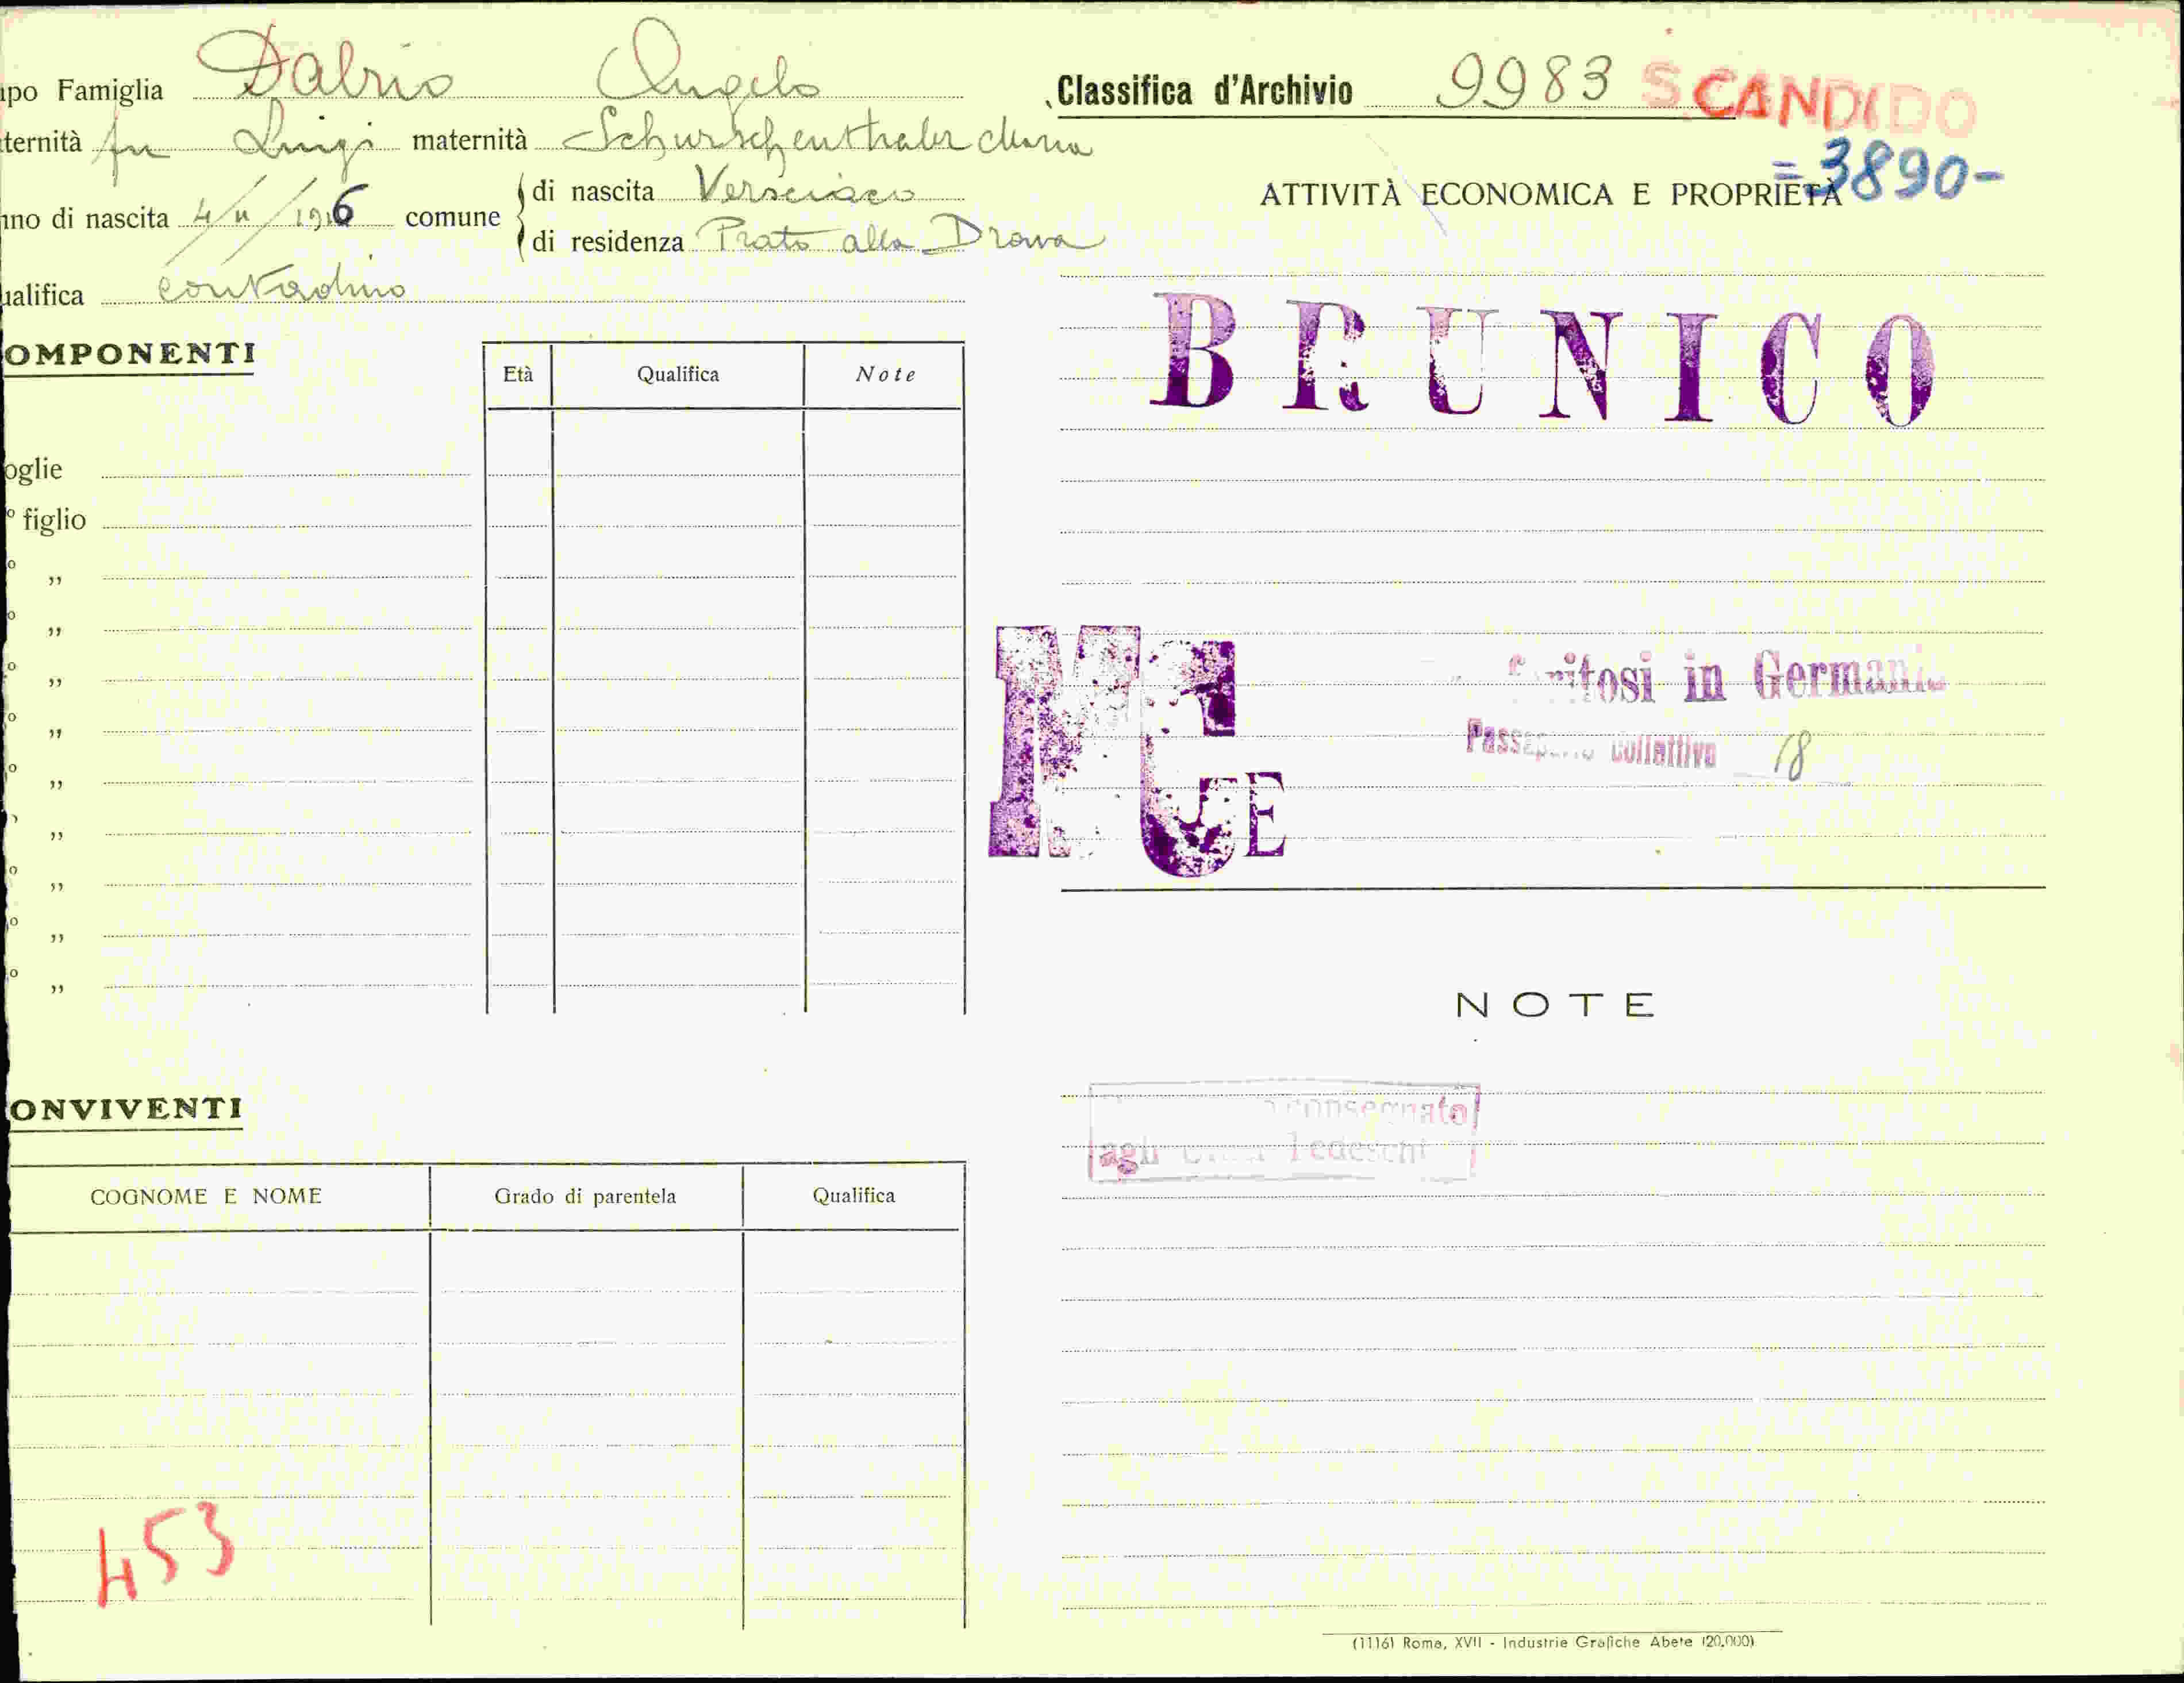 apo Famiglia Dalrio Angelo
ternità fu Luigi maternità Schurschenthaler Maria
nno di nascita 4/11/1916 comune di nascita Versciaco
di residenza Prato alla Drava
ualifica contadino
OMPONENTI
Età Qualifica Note
oglie
° figlio
° „
° „
° „
° „
° „
„
° „
° „
° „
ONVIVENTI
COGNOME E NOME Grado di parentela Qualifica
453
Classifica d'Archivio 9983 S. CANDIDO
=3890-
ATTIVITÀ ECONOMICA E PROPRIETÀ
BRUNICO
MG E
in Germani
Passaporto collettivo 18
NOTE
consegnato
agli Tedeschi
(1116) Roma, XVII - Industrie Grafiche Abete (20.000)